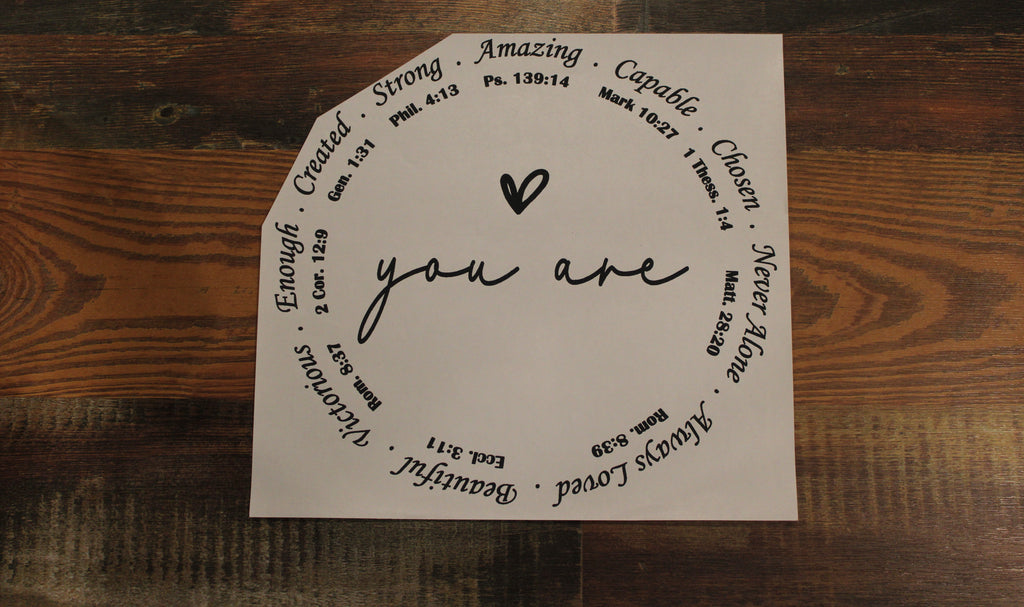 Amazing . Capable . Chosen . Never Alone . Always Loved . Beautiful . Victorious . Enough . Created . Strong .
Ps. 139:14 Mark 10:27 1 Thess. 1:4 Matt. 28:20 Rom. 8:39 Eccl. 3:11 Rom. 8:37 2 Cor. 12:9 Gen. 1:31 Phil. 4:13
you are